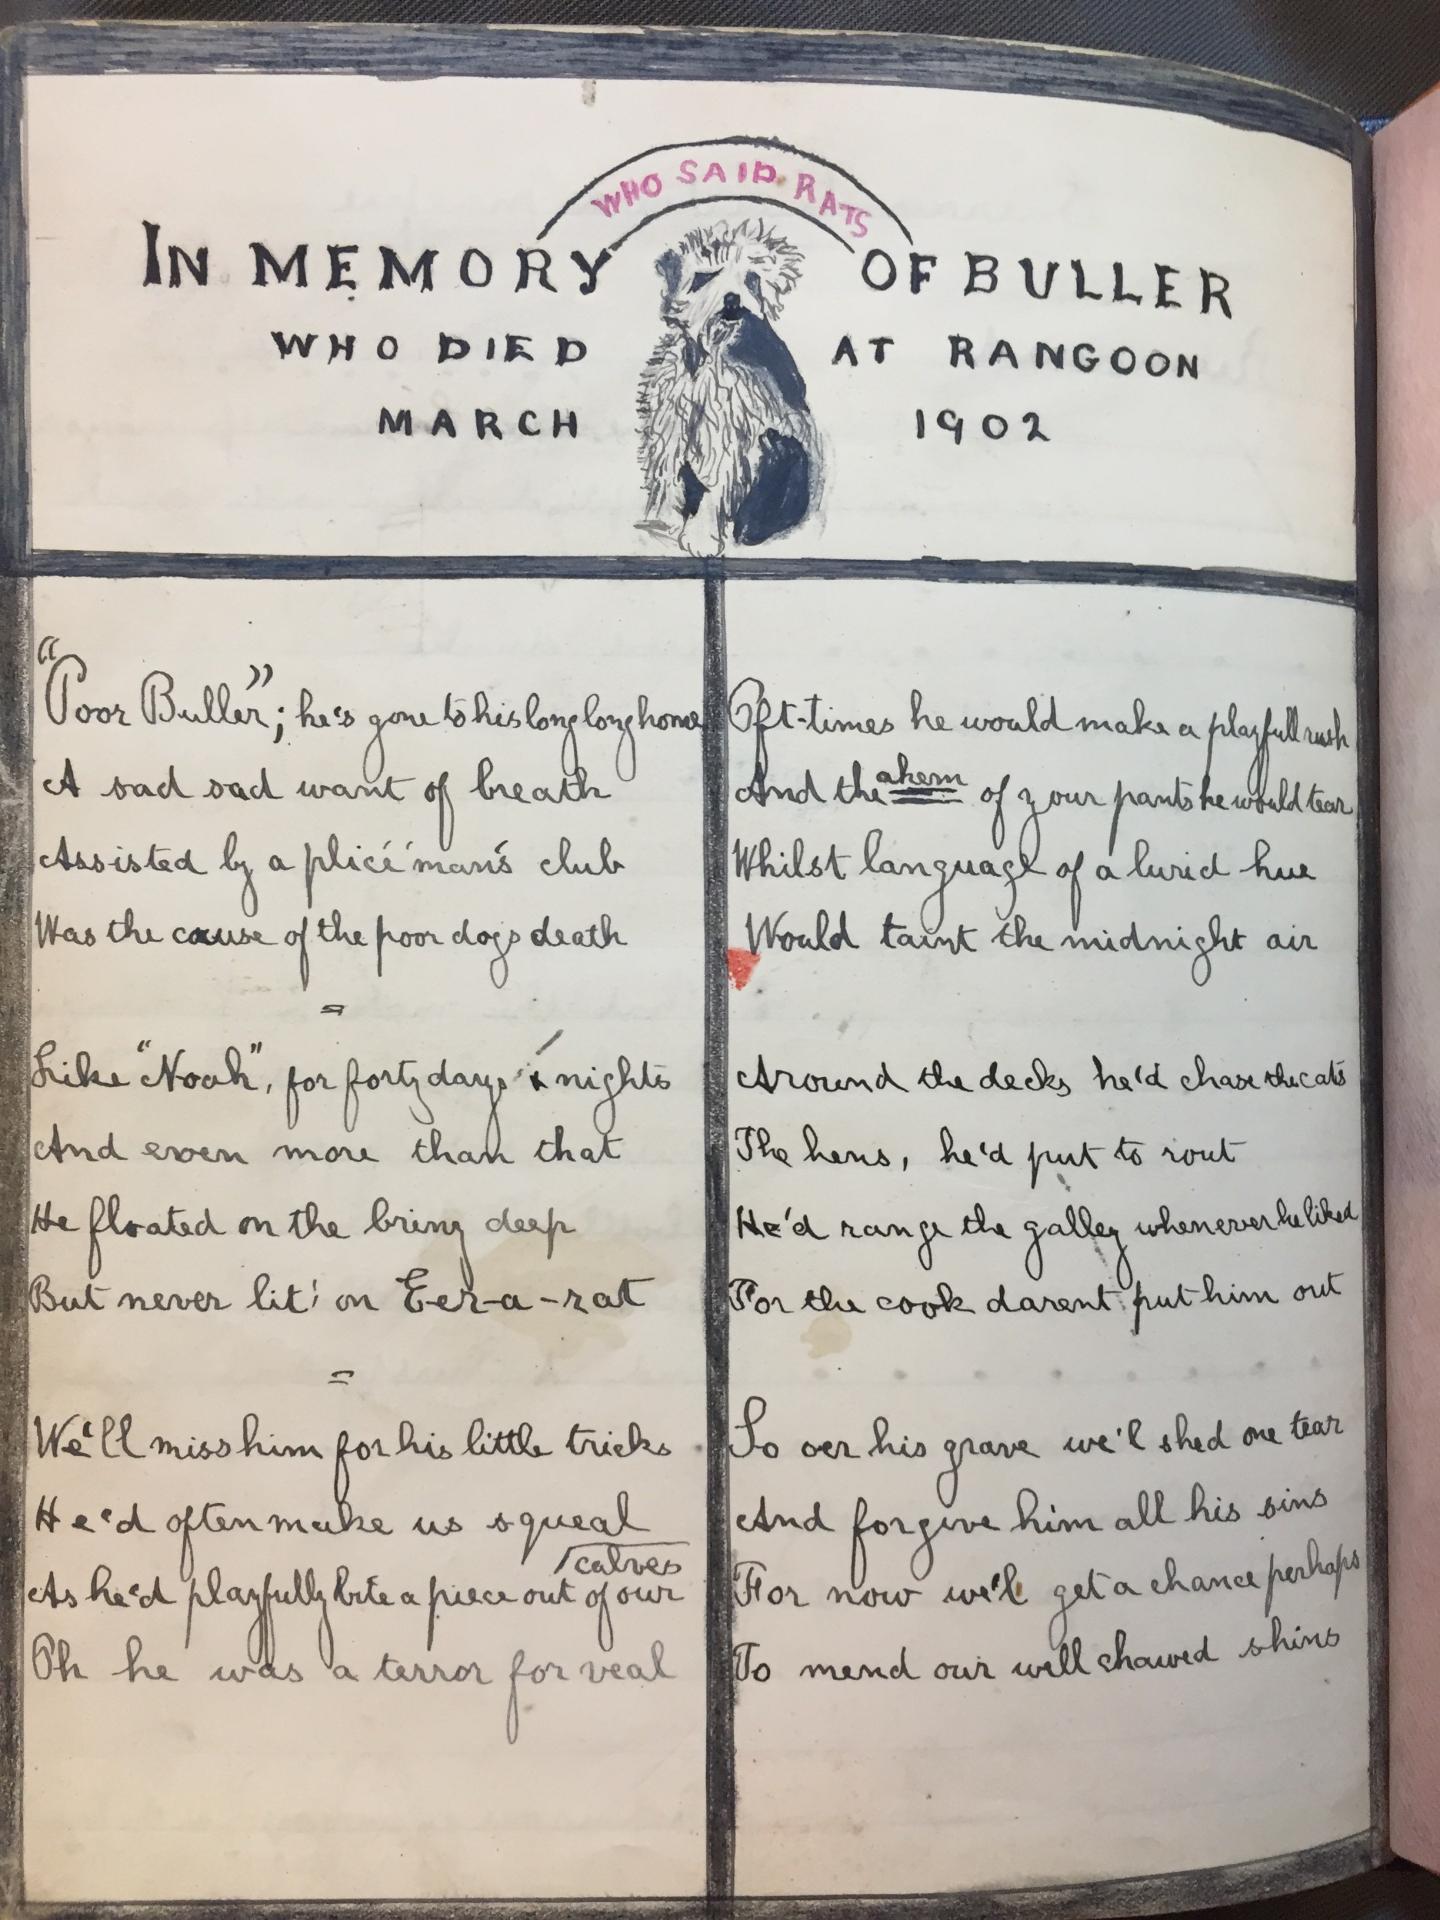 WHO SAID RATS
IN MEMORY OF BULLER
WHO DIED AT RANGOON
MARCH 1902
"Poor Buller"; he's gone to his long long home
A sad sad want of breath
Assisted by a plicé'man's club
Was the cause of the poor dogs death
=
Like "Noah", for forty days & nights
And even more than that
He floated on the briny deep
But never lit' on E-er-a-rat
=
We'll miss him for his little tricks
He'd often make us squeal
As he'd playfully bite a piece out of our calves
Oh he was a terror for veal
Oft-times he would make a playfull rush
And the ahem of your pants he would tear
Whilst language of a lurid hue
Would taint the midnight air
Around the decks he'd chase the cats
The hens, he'd put to rout
He'd range the galley whenever he liked
For the cook darent put him out
So oer his grave we'l shed one tear
And forgive him all his sins
For now we'l get a chance perhaps
To mend our well chawed shins